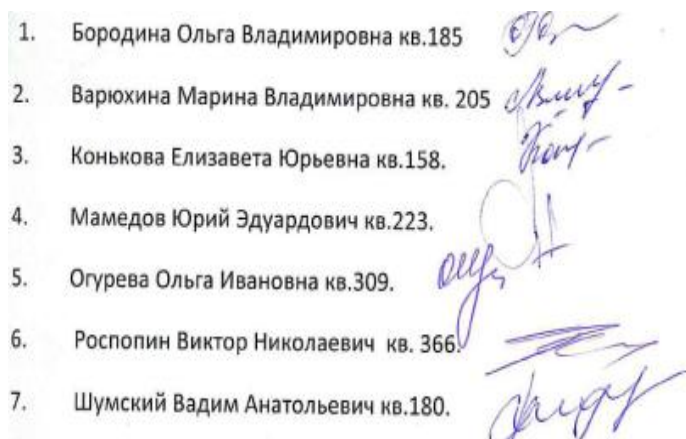 1. Бородина Ольга Владимировна кв.185
2. Варюхина Марина Владимировна кв. 205
3. Конькова Елизавета Юрьевна кв.158.
4. Мамедов Юрий Эдуардович кв.223.
5. Огурева Ольга Ивановна кв.309.
6. Роспопин Виктор Николаевич кв. 366.
7. Шумский Вадим Анатольевич кв.180.